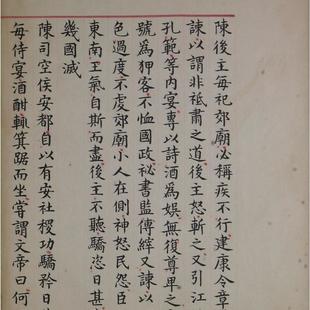 陳後主每祀郊廟必稱疾不行建康令章
諫以謂非祗肅之道後主怒斬之又引江
孔範等內宴專以詩酒為娛無復尊卑之
號為狎客不恤國政祕書監傅縡又諫以
色過度不虔郊廟小人在側神怒民怨臣
東南王氣自斯而盡後主不聽驕恣日甚
幾國滅
陳司空侯安都自以有安社稷功驕矜日
每侍宴酒酣輒箕踞而坐嘗謂文帝曰何